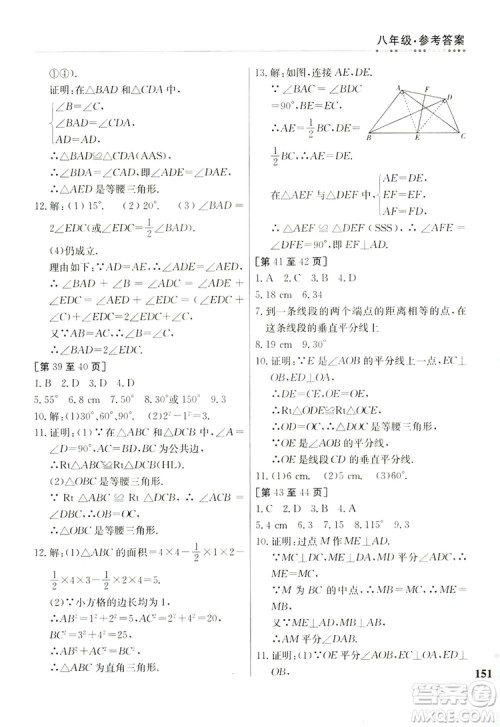 八年级·参考答案
①④).
证明:在△BAD 和△CDA 中,
∠B=∠C,
∠BAD=∠CDA,
AD=AD,
∴△BAD≌△CDA(AAS).
∴∠BDA=∠CAD,
∴△AED 是等腰三角形.
12.解:(1)15°. (2)20°. (3)∠BAD=
2∠EDC(或∠EDC=1/2∠BAD).
(4)仍成立.
理由如下:∵AD=AE,∴∠ADE=
∠AED.
∴∠BAD+∠B=∠ADC=∠ADE
+∠EDC=∠AED+∠EDC=
(∠EDC+∠C)+∠EDC=2∠EDC
+∠C.
又∵AB=AC,∴∠B=∠C.
∴∠BAD=2∠EDC.
[第 39 至 40 页]
1.B 2.D 3.A 4.A
5.55° 6.8 cm 7.50° 8.150 9.3
10.解:(1)30°,60°,90°. (2)2²-1²=3.
11.证明:(1)在△ABC 和△DCB 中,∠A
=∠D=90°,AC=BD,BC 为公共边,
∴Rt△ABC≌Rt△DCB(HL).
(2)△OBC 是等腰三角形.
∵Rt△ABC≌Rt△DCB,∴∠ACB
=∠DBC.∴OB=OC.
∴△OBC 是等腰三角形.
12.解:(1)△ABC 的面积=4×4-1/2×
1/2×1×2-1/2×4×3-1/2×2×4=5.
(2)∵小方格的边长均为 1,
∴AB²=1²+2²=5,AC²=2²+4²=20,
BC²=3²+4²=25.
∴AB²+AC²=BC².
∴△ABC 为直角三角形.
13.解:如图,连接 AE,DE.
∵∠BAC=∠BDC
=90°,BE=EC,
∴AE=1/2BC,DE=
1/2BC,∴AE=DE.
A F D B E C
在△AEF 和△DEF 中,
AE=DE,
EF=EF,
AF=DF,
∴△AEF≌△DEF(SSS).∴∠AFE=
∠DFE=90°,即 EF⊥AD.
[第 41 至 42 页]
1.A 2.C 3.B 4.D
5.18 cm 6.34
7.到一条线段的两个端点的距离相等的点
在这条线段的垂直平分线上.
8.19 cm 9.3
10.证明:∵E 是∠AOB 的平分线上一点,EC⊥
OB,ED⊥OA,∴DE=CE.又∵OE=OE,
∴Rt△ODE≌Rt△OCE.∴OD=OC.
又∵OE 是∠AOB 的平分线,
∴OE 是线段 CD 的垂直平分线.
11.(1)6 cm. (2)5 cm. (3)60°.
[第 43 至 44 页]
1.A 2.C 3.D 4.B
5.4 cm 6.90° 7.8 8.115° 9.3
10.证明:过点 M 作 ME⊥AD.
∵MC⊥DC,ME⊥AD,
DM 平分∠ADC,
∴MC=ME.
∵M 为 BC 的中点,∴MB=MC.
∴MB=ME.
又∵MB⊥AB,ME⊥AD,
∴AM 平分∠DAB.
11.证明:(1)∵EC⊥OA,ED⊥OB,
∴ED=EC,即△CDE 为等腰三角形.
∴∠ECD=∠EDC.
151